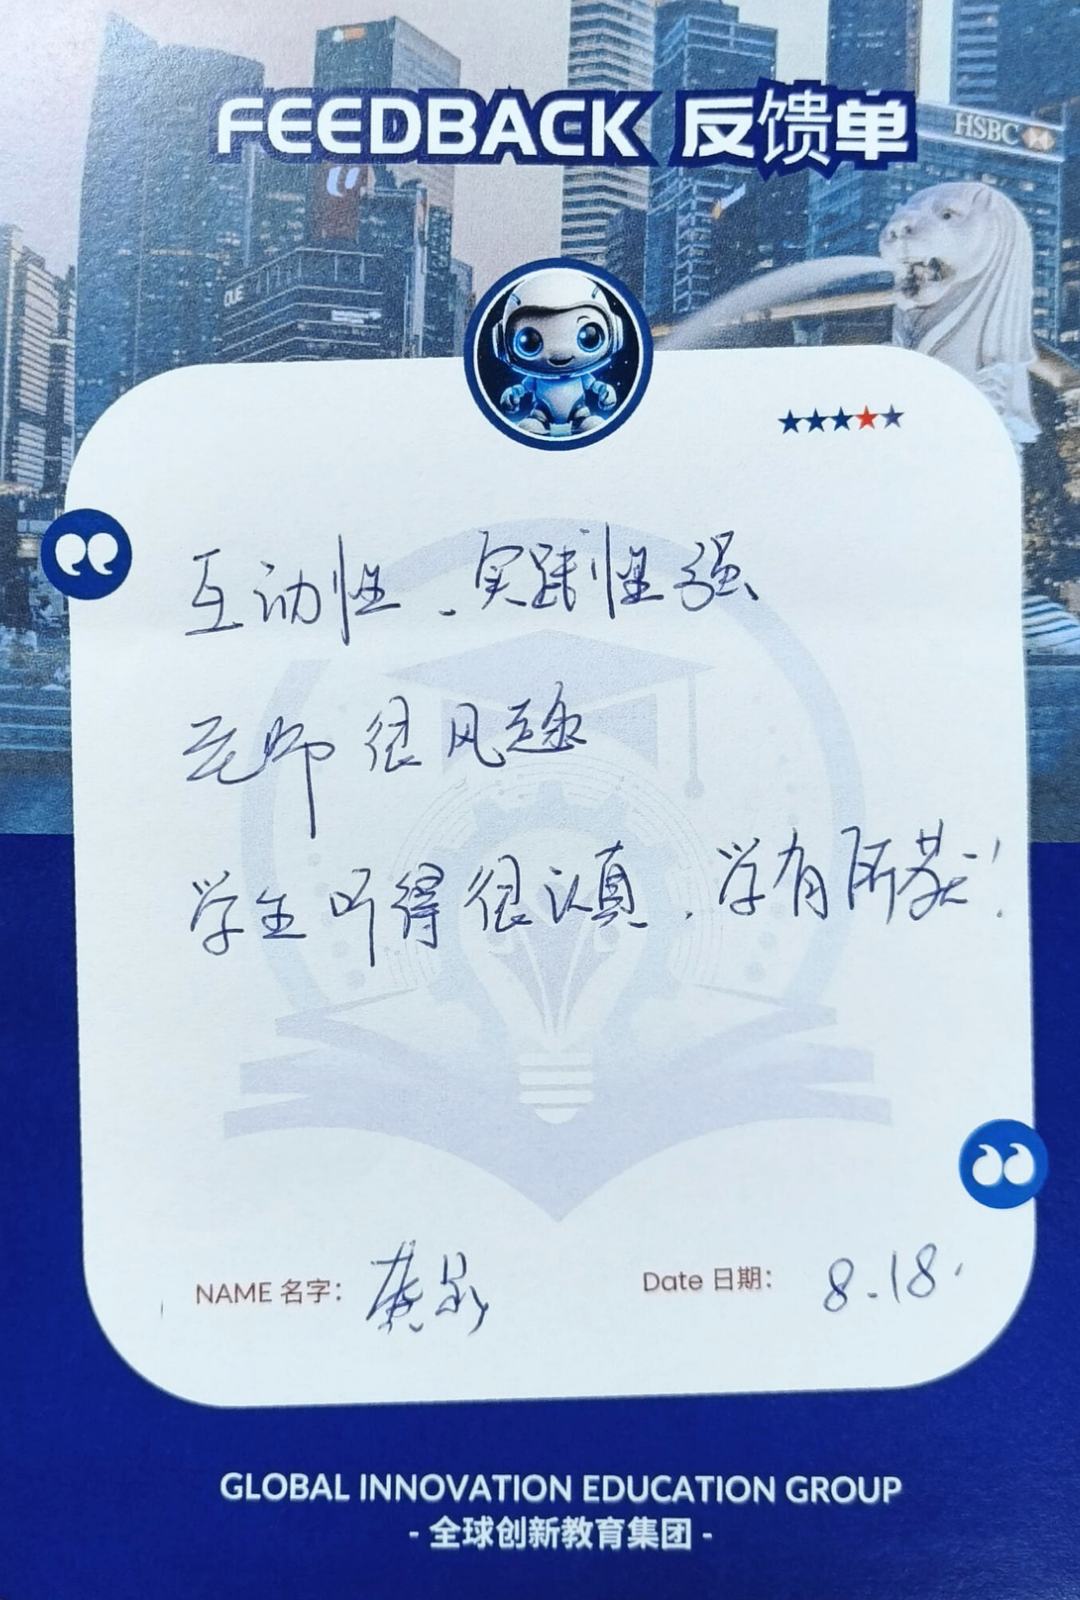 FEEDBACK 反馈单
HSBC
OUE
互动性、实践性强
老师很风趣
学生听得很认真，学有所获！
NAME 名字：
Date 日期： 8.18.
GLOBAL INNOVATION EDUCATION GROUP
- 全球创新教育集团 -